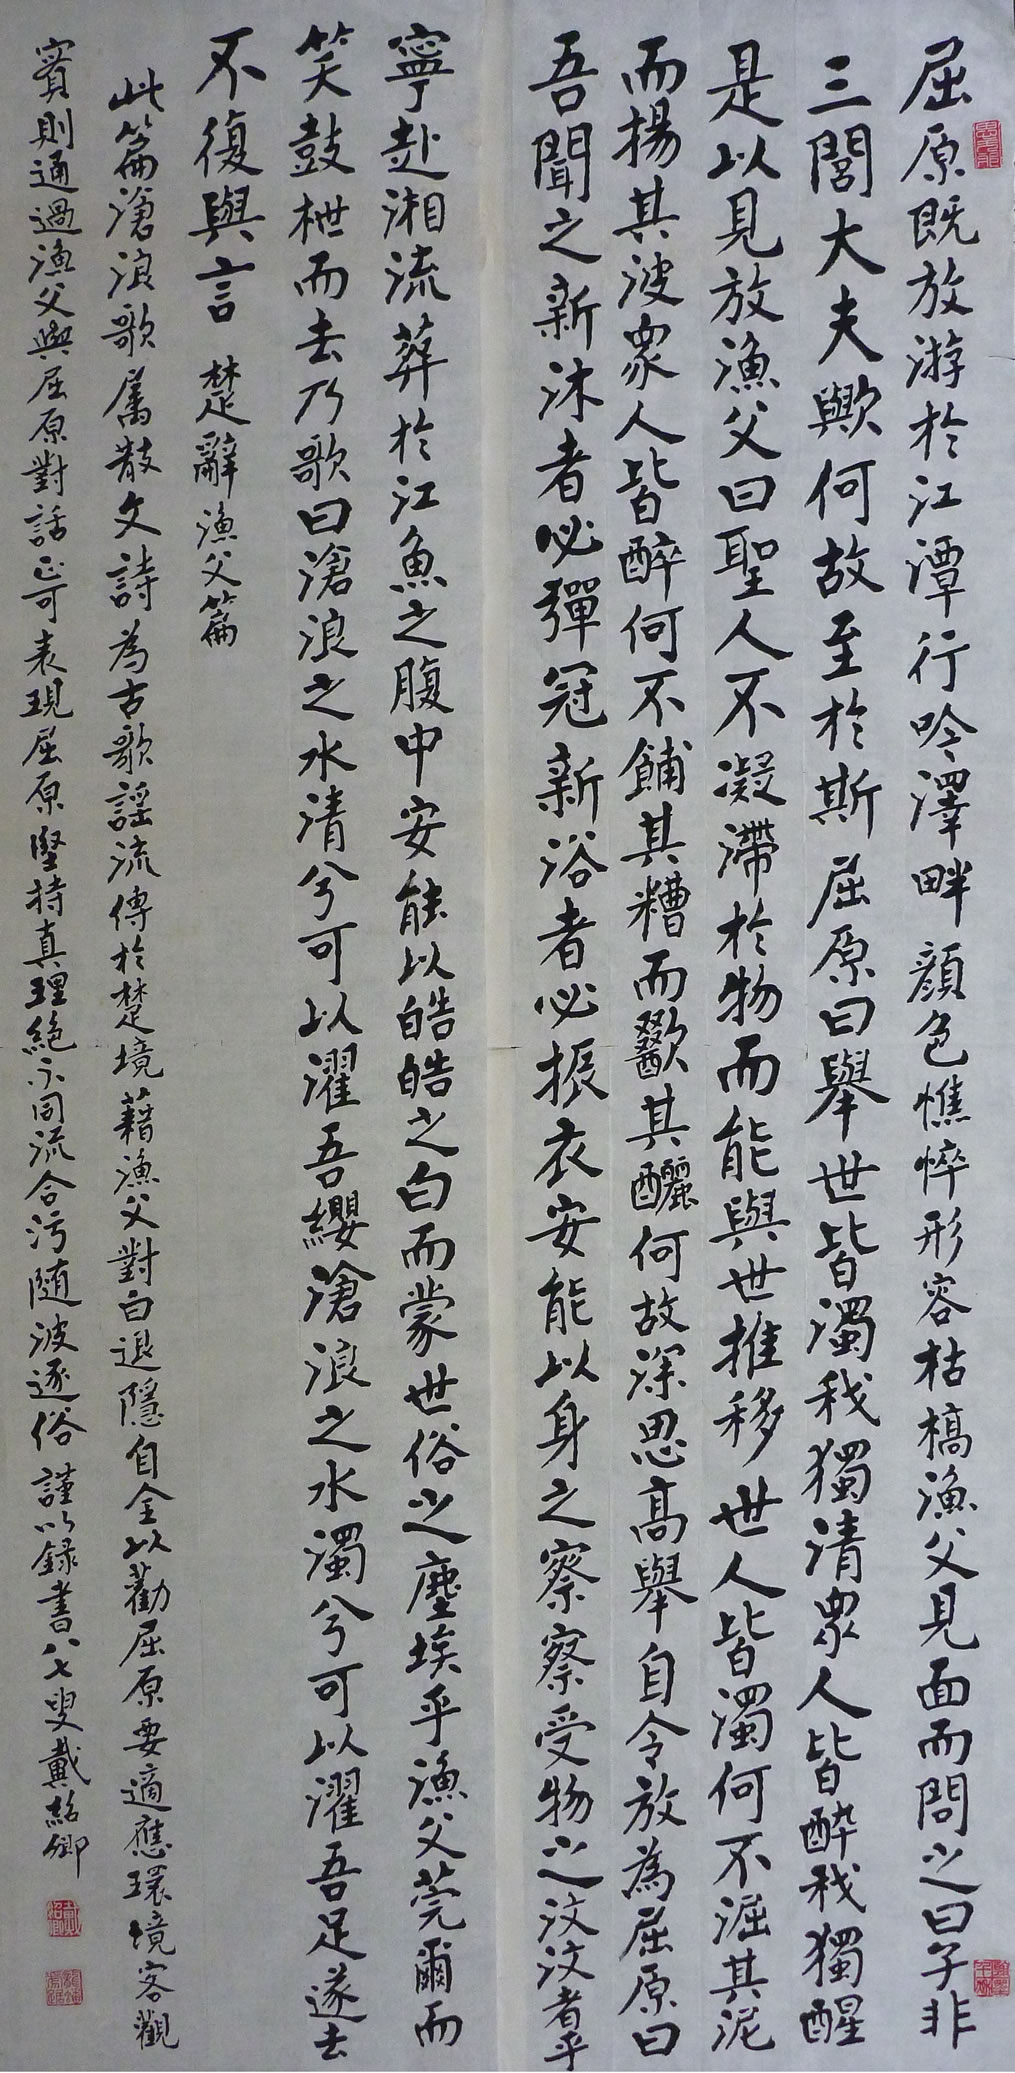 屈原既放游於江潭行吟澤畔顏色憔悴形容枯槁漁父見面而問之曰子非
三閭大夫歟何故至於斯屈原曰舉世皆濁我獨清眾人皆醉我獨醒
是以見放漁父曰聖人不凝滯於物而能與世推移世人皆濁何不淈其泥
而揚其波眾人皆醉何不餔其糟而歠其釃何故深思高舉自令放為屈原曰
吾聞之新沐者必彈冠新浴者必振衣安能以身之察察受物之汶汶者乎
寧赴湘流葬於江魚之腹中安能以皓皓之白而蒙世俗之塵埃乎漁父莞爾而
笑鼓枻而去乃歌曰滄浪之水清兮可以濯吾纓滄浪之水濁兮可以濯吾足遂去
不復與言 楚辭漁父篇
此篇滄浪歌屬散文詩為古歌謠流傳於楚境藉漁父對白退隱自全以勸屈原要適應環境客觀
實則通過漁父與屈原對話正可表現屈原堅持真理絕不同流合污隨波逐俗謹以錄書八七叟戴紹卿